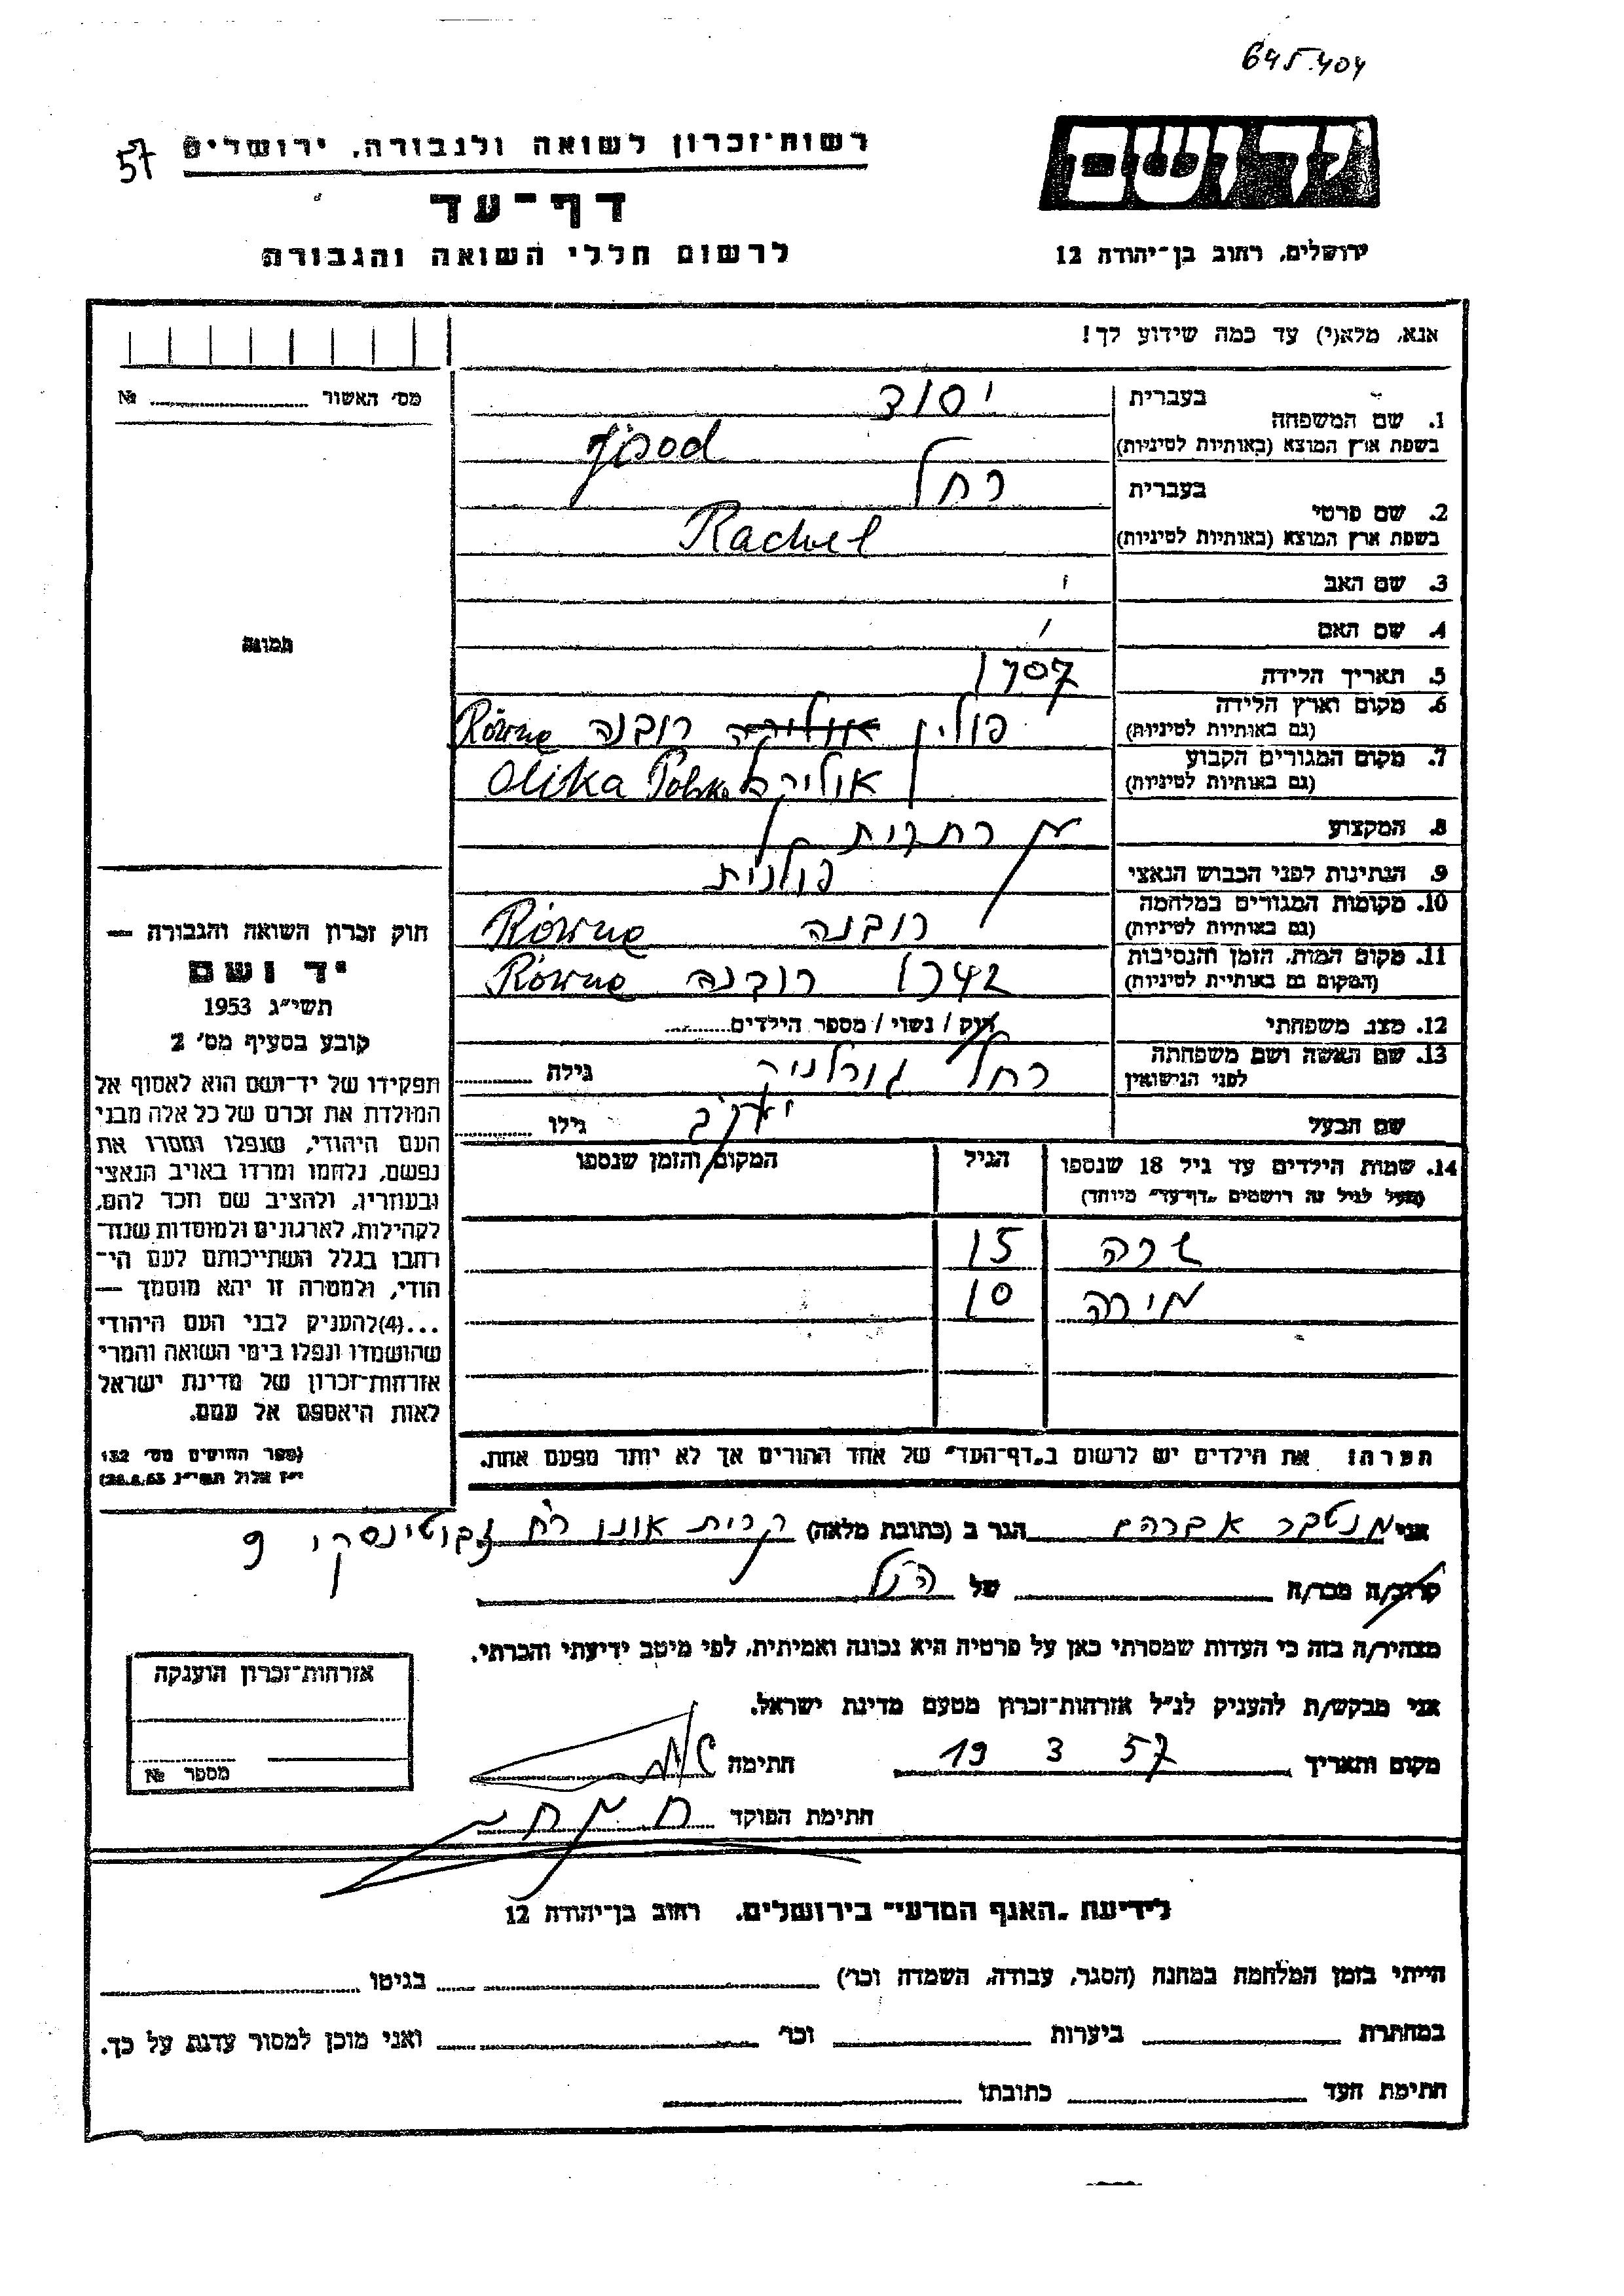 645.404
57
רשות־זכרון לשואה ולגבורה, ירושלים
דף־עד
לרשום חללי השואה והגבורה
יד ושם
ירושלים, רחוב בן־יהודה 12
אנא, מלא(י) עד כמה שידוע לך!
מס׳ האשור № ........
1. שם המשפחה
בעברית יסוד
בשפת ארץ המוצא (באותיות לטיניות) Jisod
2. שם פרטי
בעברית רחל
בשפת ארץ המוצא (באותיות לטיניות) Rachel
3. שם האב
4. שם האם
5. תאריך הלידה 1907
6. מקום וארץ הלידה (גם באותיות לטיניות) פולין אוליקה רובנה Równe
7. מקום המגורים הקבוע (גם באותיות לטיניות) אוליקה Olika Polska
8. המקצוע
9. הנתינות לפני הכבוש הנאצי פולנית
10. מקומות המגורים במלחמה (גם באותיות לטיניות) רובנה Równe
11. מקום המות, הזמן והנסיבות (המקום גם באותיות לטיניות) 1942 רובנה Równe
12. מצב משפחתי רוק / נשוי / מספר הילדים........
13. שם האשה ושם משפחתה לפני הנישואין רחל גורלניק גילה ........
שם הבעל יעקב גילו ........
14. שמות הילדים עד גיל 18 שנספו
(מעל לגיל זה רושמים „דף־עד״ מיוחד)
הגיל
המקום והזמן שנספו
שרה 15
מירה 10
הערה: את הילדים יש לרשום ב„דף־העד״ של אחד ההורים אך לא יותר מפעם אחת.
תמונה
חוק זכרון השואה והגבורה —
יד ושם
תשי״ג 1953
קובע בסעיף מס׳ 2
תפקידו של יד־ושם הוא לאסוף אל
המולדת את זכרם של כל אלה מבני
העם היהודי, שנפלו ומסרו את
נפשם, נלחמו ומרדו באויב הנאצי
ובעוזריו, ולהציב שם וזכר להם,
לקהילות, לארגונים ולמוסדות שנח־
רבו בגלל השתייכותם לעם הי־
הודי, ולמטרה זו יהא מוסמך —
...(4)להעניק לבני העם היהודי
שהושמדו ונפלו בימי השואה והמרי
אזרחות־זכרון של מדינת ישראל
לאות היאספם אל עמם.
(ספר החוקים מס׳ 132
י״ז אלול תשי״ג 28.8.53)
אני מנטבר אברהם הגר ב (כתובת מלאה) קרית אונו רח ז׳בוטינסקי 9
קרוב/ה מכר/ה של הנ״ל
מצהיר/ה בזה כי העדות שמסרתי כאן על פרטיה היא נכונה ואמיתית, לפי מיטב ידיעתי והכרתי.
אני מבקש/ת להעניק לנ״ל אזרחות־זכרון מטעם מדינת ישראל.
מקום ותאריך 19 3 57 חתימה
חתימת הפוקד
אזרחות־זכרון הוענקה
מספר №
לידיעת „האגף המדעי״ בירושלים, רחוב בן־יהודה 12
הייתי בזמן המלחמה במחנה (הסגר, עבודה, השמדה וכו׳) ........ בגיטו ........
במחתרת ........ ביערות ........ וכו׳ ........ ואני מוכן למסור עדות על כך.
חתימת העד ........ כתובתו ........